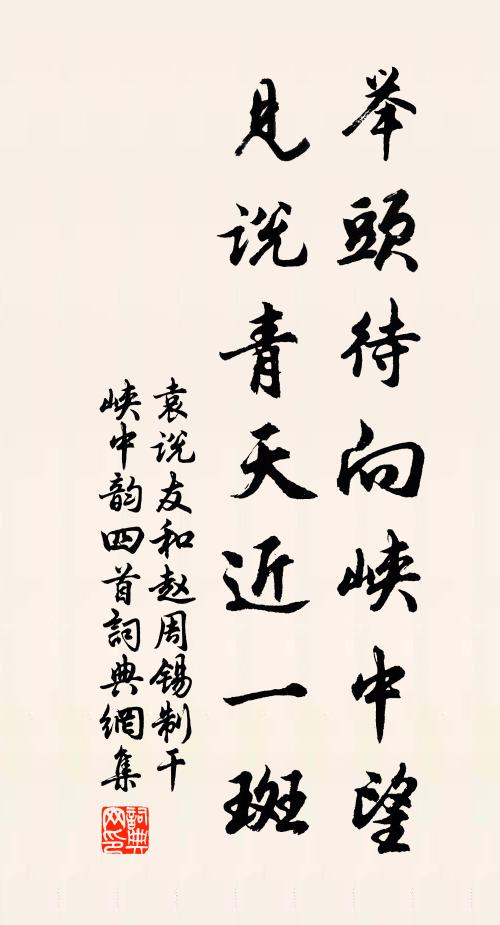 举頭待向峡中望
見说青天近一斑
袁说友和赵周锡制干
峡中韵四首詞典網集
詞典
网印